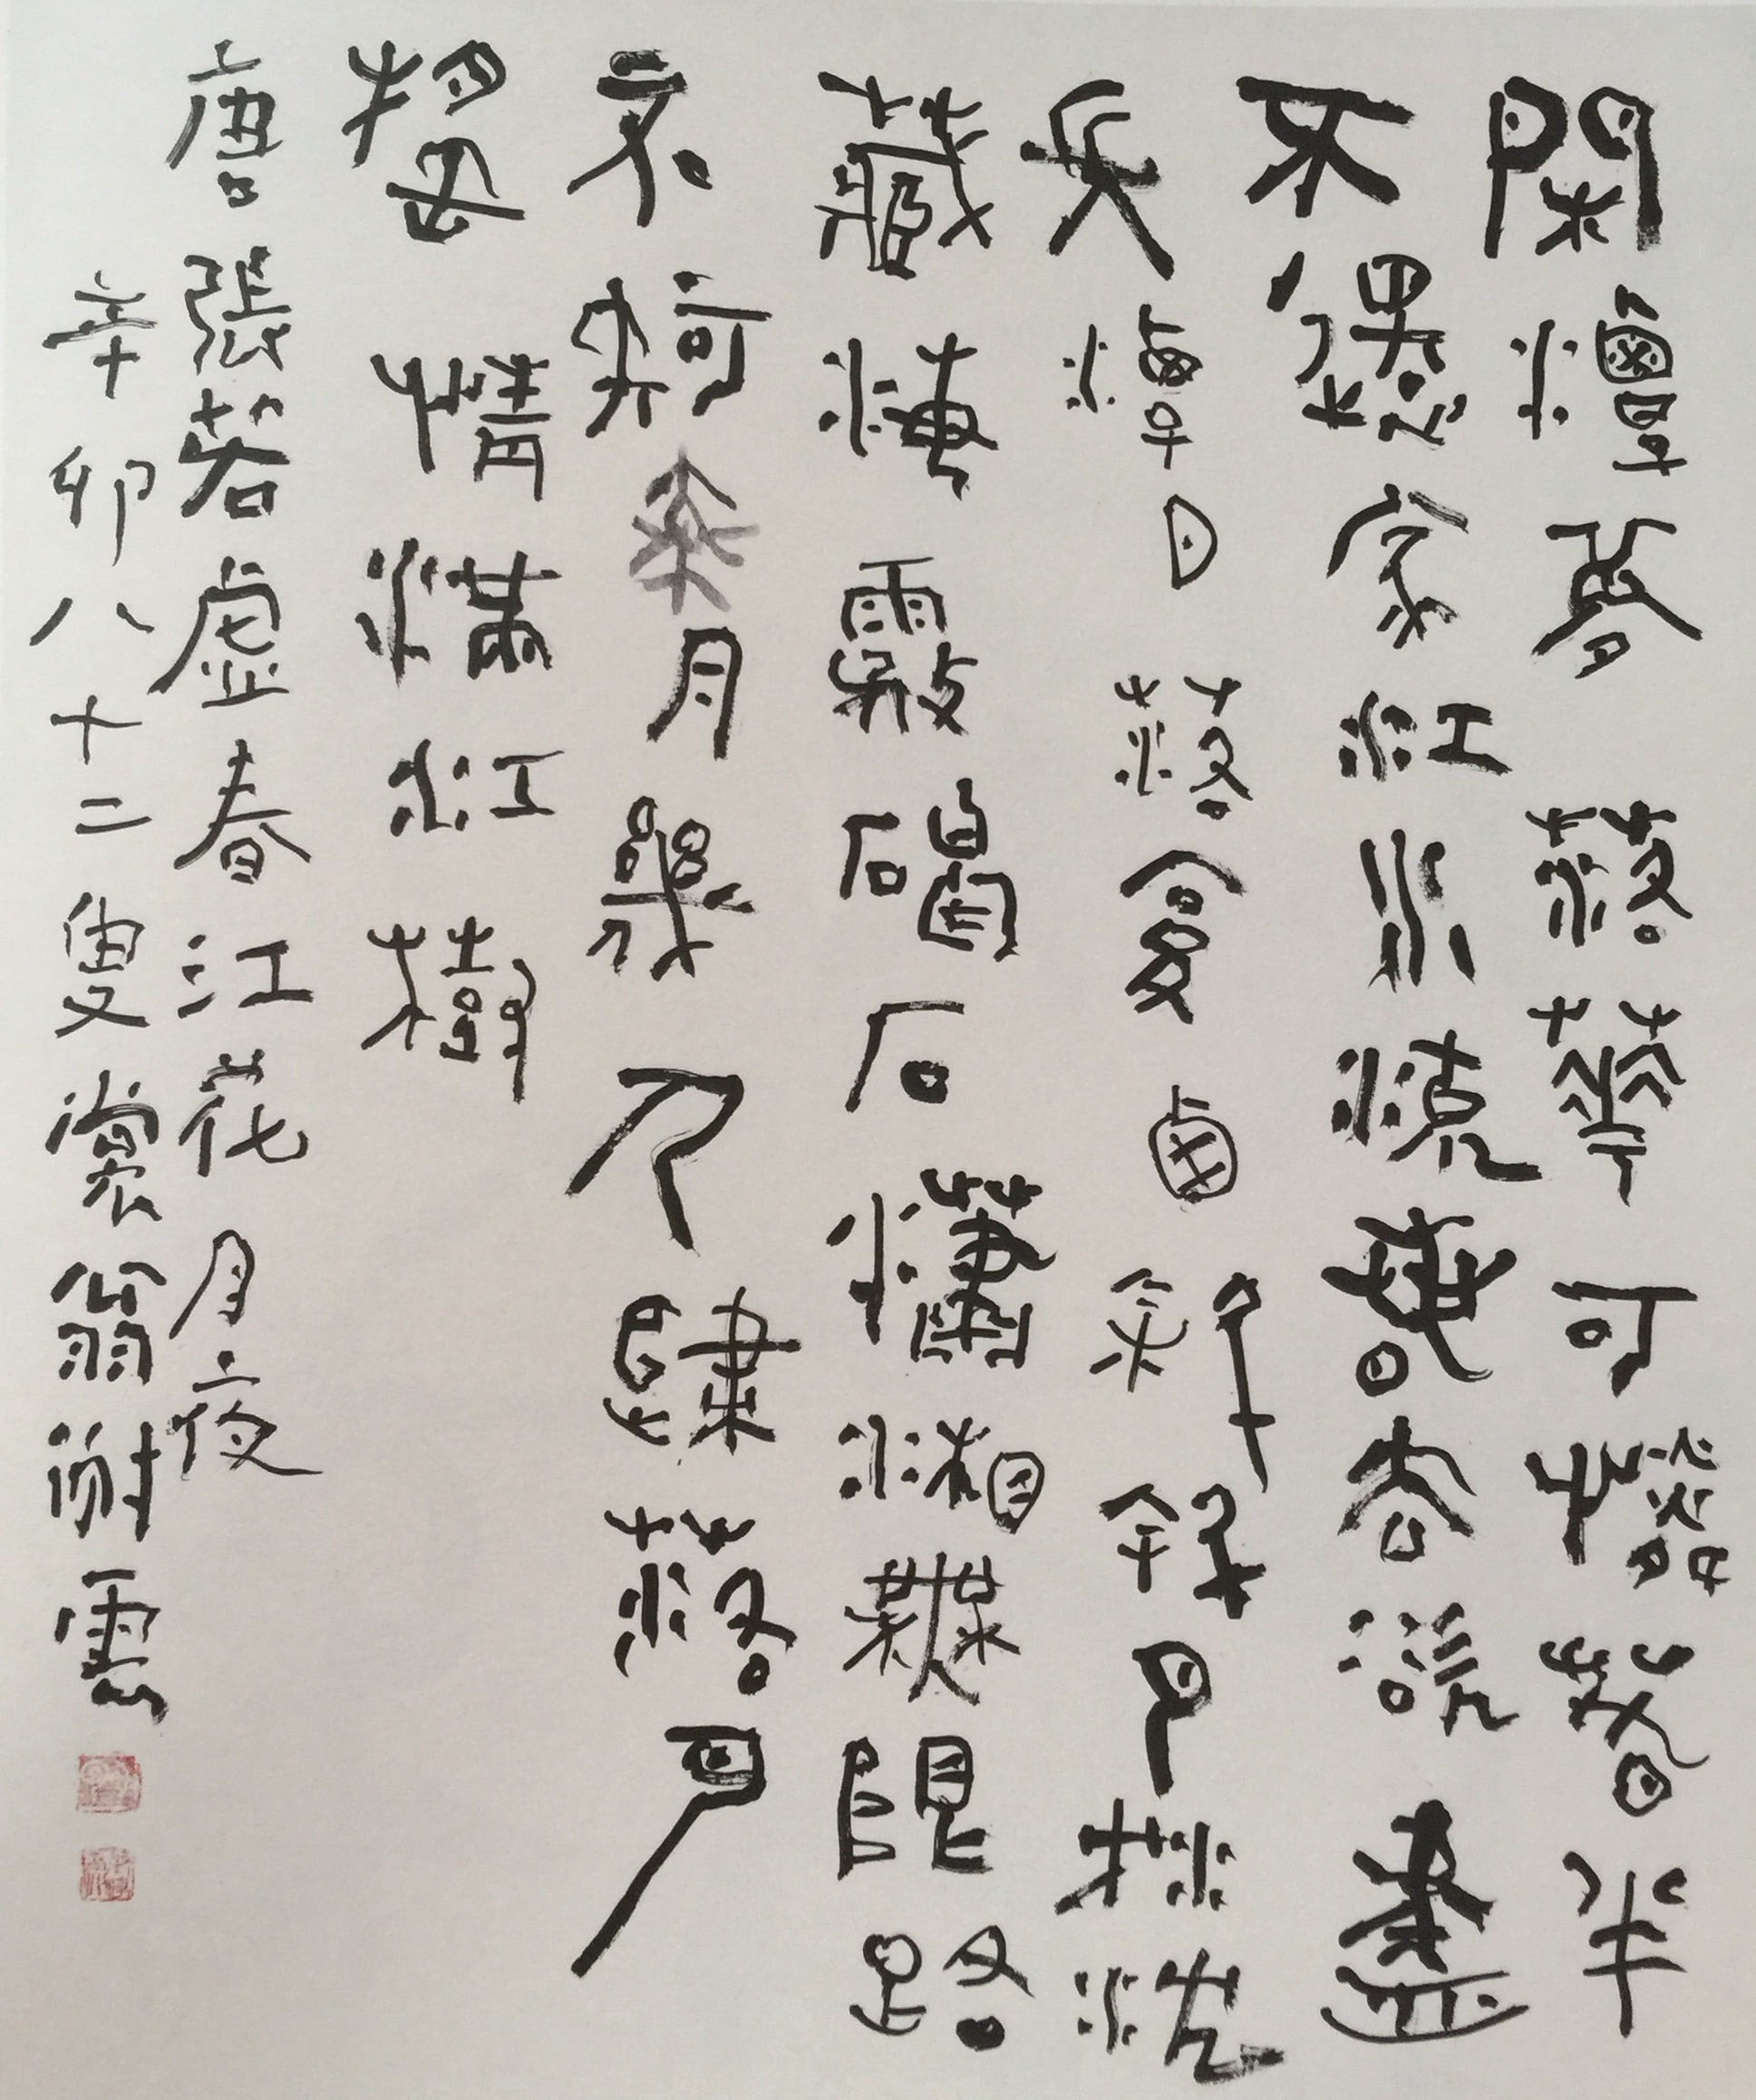 閒潭夢落華可憐春半
不還家江水流春去欲盡
潭月落復西斜斜月沉沉
藏海霧碣石瀟湘無限路
不知乘月幾人歸落月
搖情滿江樹
唐張若虛春江花月夜
辛卯八十二叟裳翁謝雲